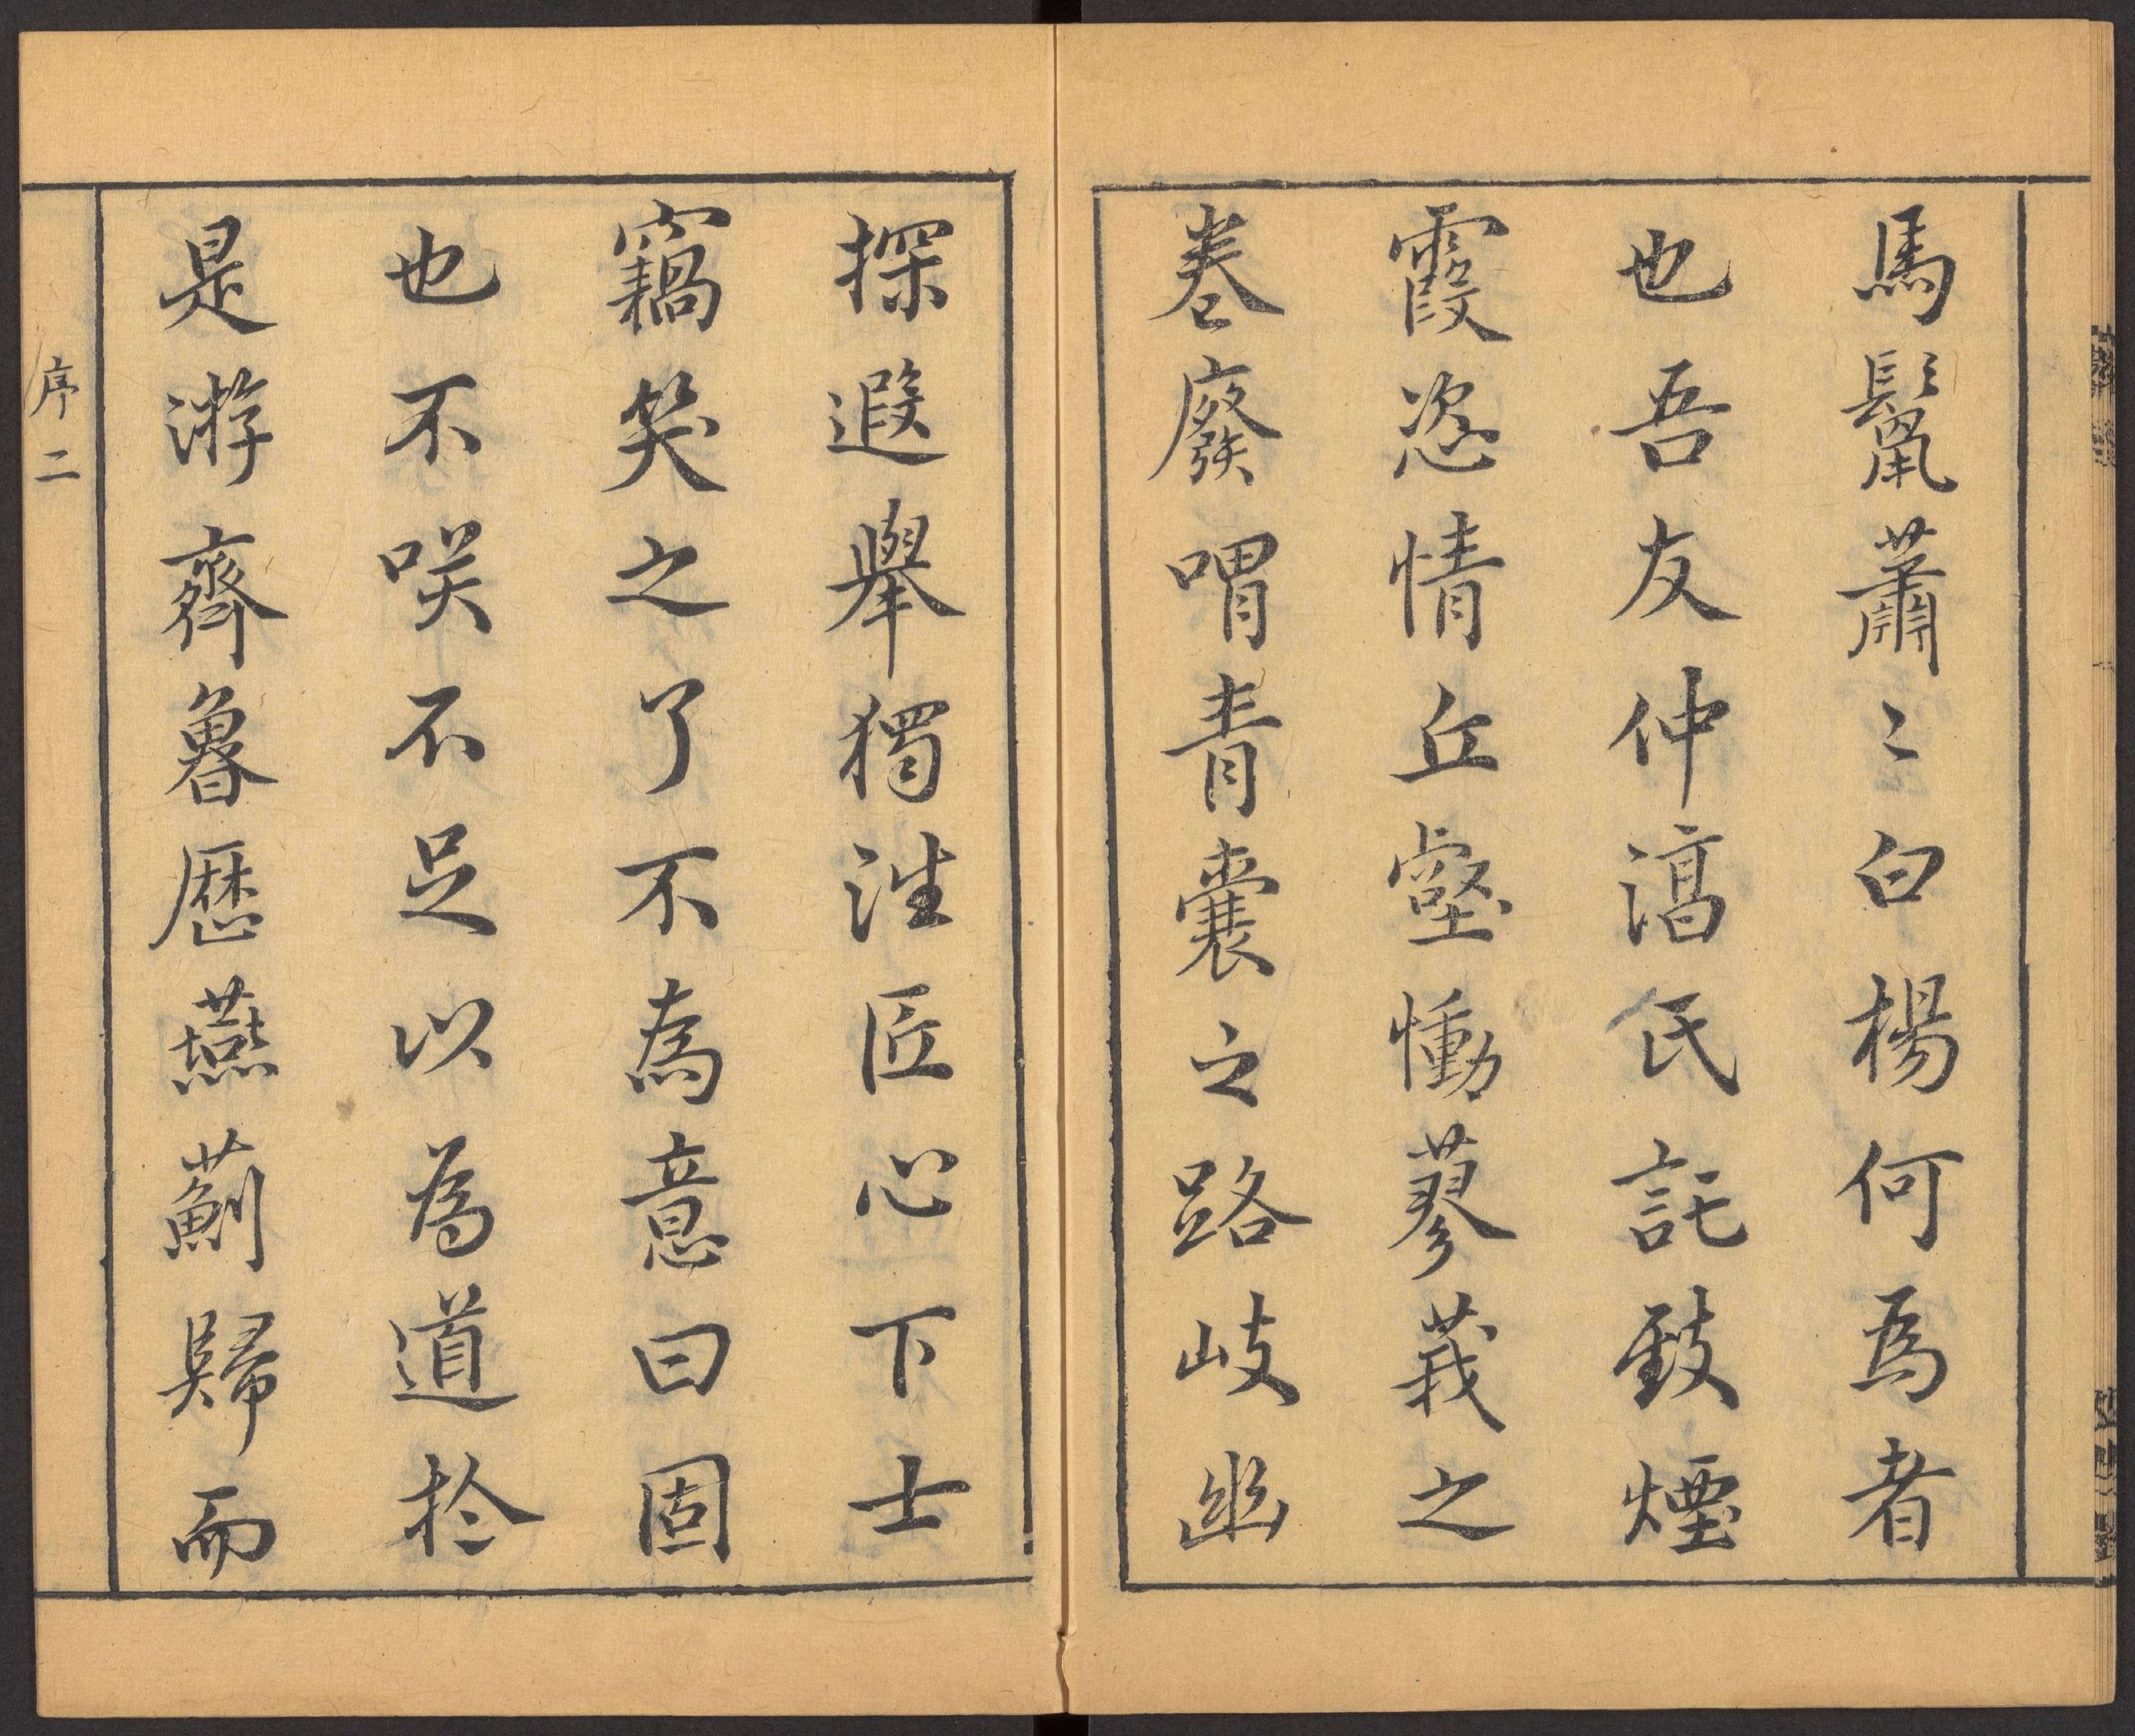 馬鬣蕭〻白楊何為者
也吾友仲滈氏託致煙
霞恣情丘壑慟蓼莪之
卷廢喟青囊之路岐幽
探遐舉獨泩匠心下士
竊笑之了不為意曰固
也不咲不足以為道扵
是游齊魯歷燕薊歸而
序二